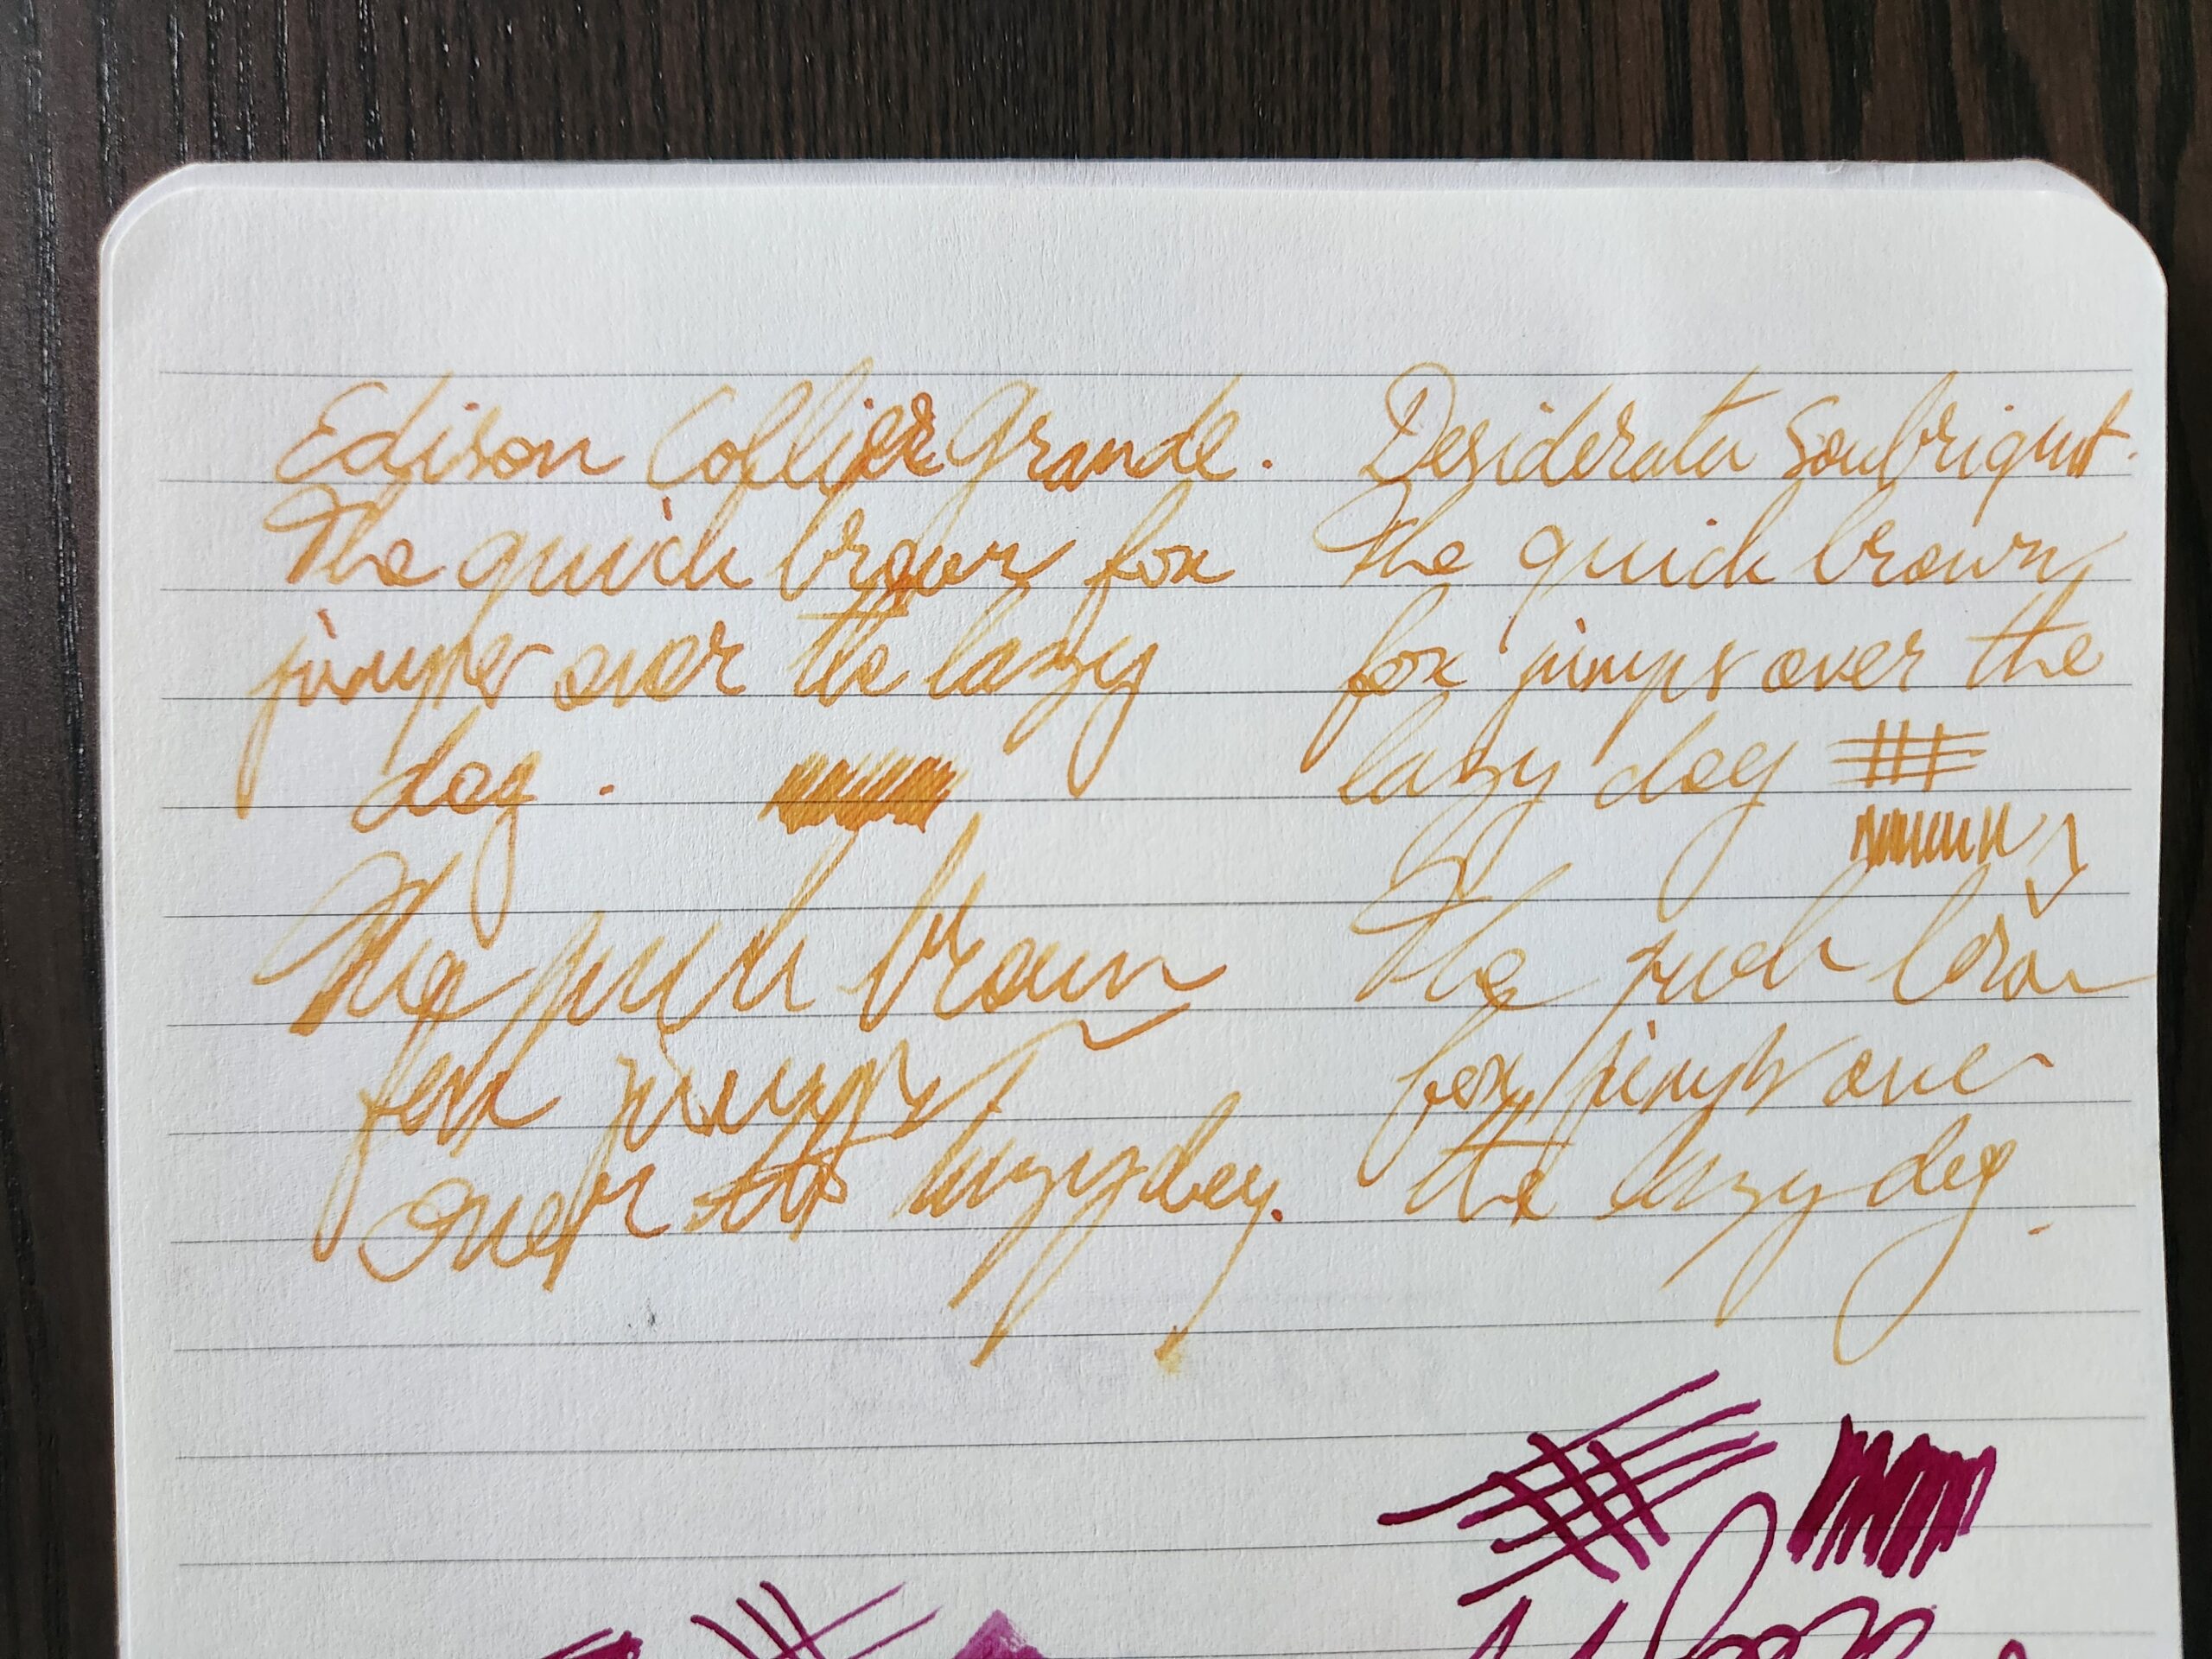 Edison Collier Grande.
The quick brown fox
jumps over the lazy
dog.
The quick brown
fox jumps
over the lazy dog.
Desiderata Soubriquet.
The quick brown
fox jumps over the
lazy dog
The quick brown
fox jumps over
the lazy dog.